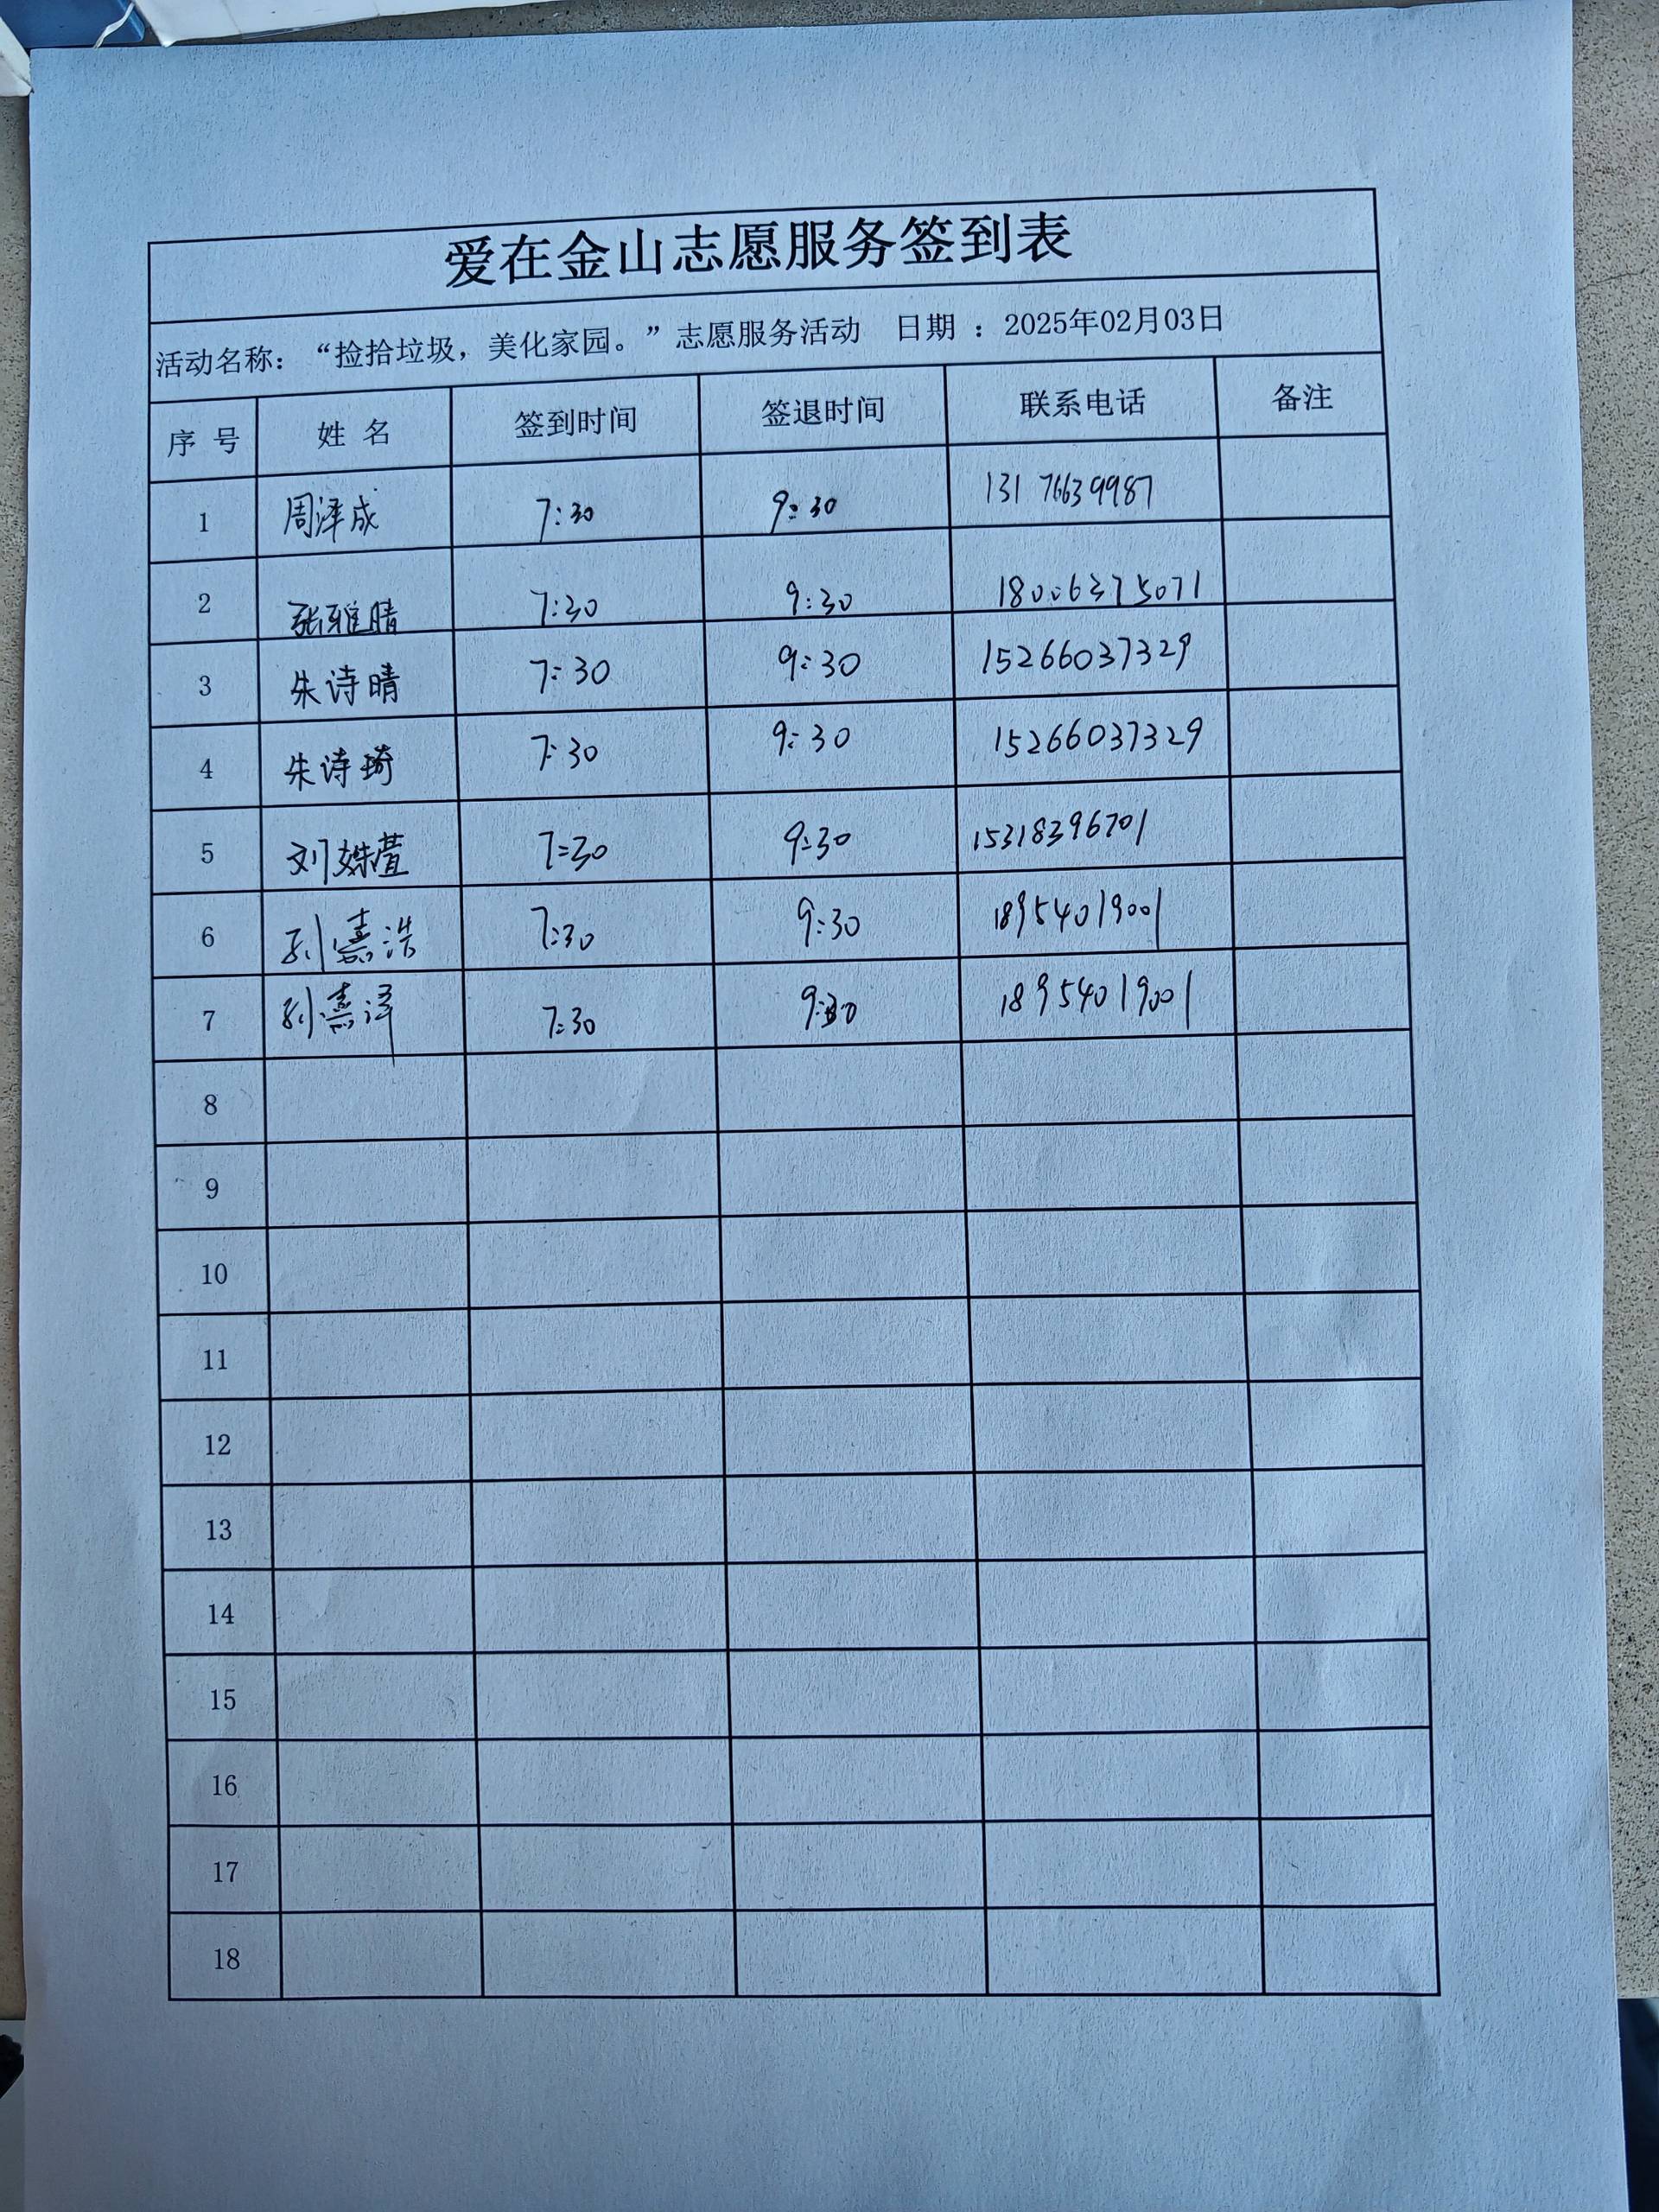 爱在金山志愿服务签到表
活动名称：“捡拾垃圾，美化家园。”志愿服务活动 日期 ：2025年02月03日
序 号 姓 名 签到时间 签退时间 联系电话 备注
1 周泽成 7:30 9:30 13176639987
2 张雅晴 7:30 9:30 18006375071
3 朱诗晴 7:30 9:30 15266037329
4 朱诗琦 7:30 9:30 15266037329
5 刘姝萱 7:30 9:30 15318396701
6 孙嘉浩 7:30 9:30 18954019001
7 孙嘉泽 7:30 9:30 18954019001
8
9
10
11
12
13
14
15
16
17
18